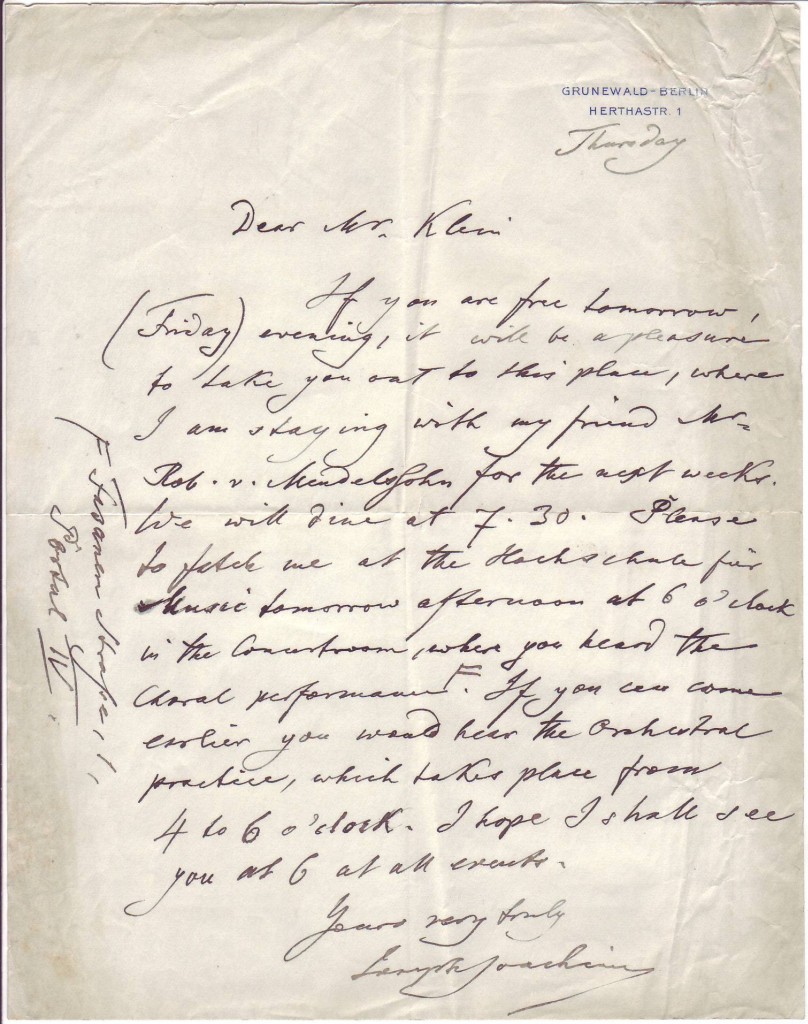 GRUNEWALD-BERLIN
HERTHASTR. 1
Thursday
Dear Mr. Klein
If you are free tomorrow,
(Friday) evening, it will be a pleasure
to take you out to this place, where
I am staying with my friend Mr.
Rob. v. Mendelssohn for the next weeks.
We will dine at 7.30. Please
to fetch me at the Hochschule für
Music tomorrow afternoon at 6 o'clock
in the Concertroom, where you heard the
Choral performance F. If you can come
earlier you would hear the Orchestral
practice, which takes place from
4 to 6 o'clock. I hope I shall see
you at 6 at all events.
Yours very truly
Joseph Joachim
F Fasanen Strasse, 1,
Portal IV.